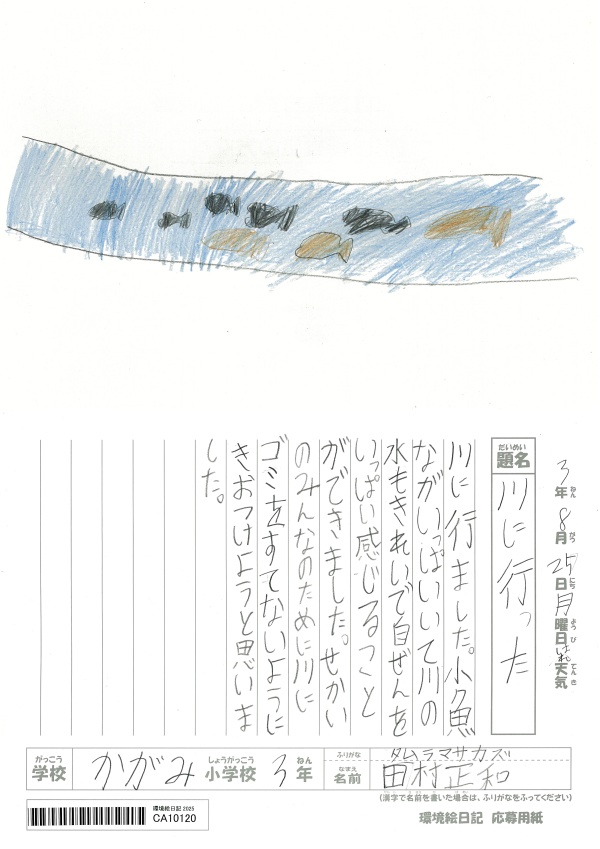 3年ねん 8月がつ 25日にち 月曜日ようび はれ天気てんき
だいめい
題名 川に行った
川に行ました。小魚
ながいっぱいいて川の
水もきれいで自ぜんを
いっぱい感じるこっと
ができました。せかい
のみんなのために川に
ゴミをすてないように
きおつけようと思いま
した。
がっこう
学校
かがみ 小学校しょうがっこう 3年ねん
ふりがな タムラマサカズ
なまえ
名前 田村正和
(漢字で名前を書いた場合は、ふりがなをふってください)
環境絵日記 2025
CA10120
環境絵日記 応募用紙